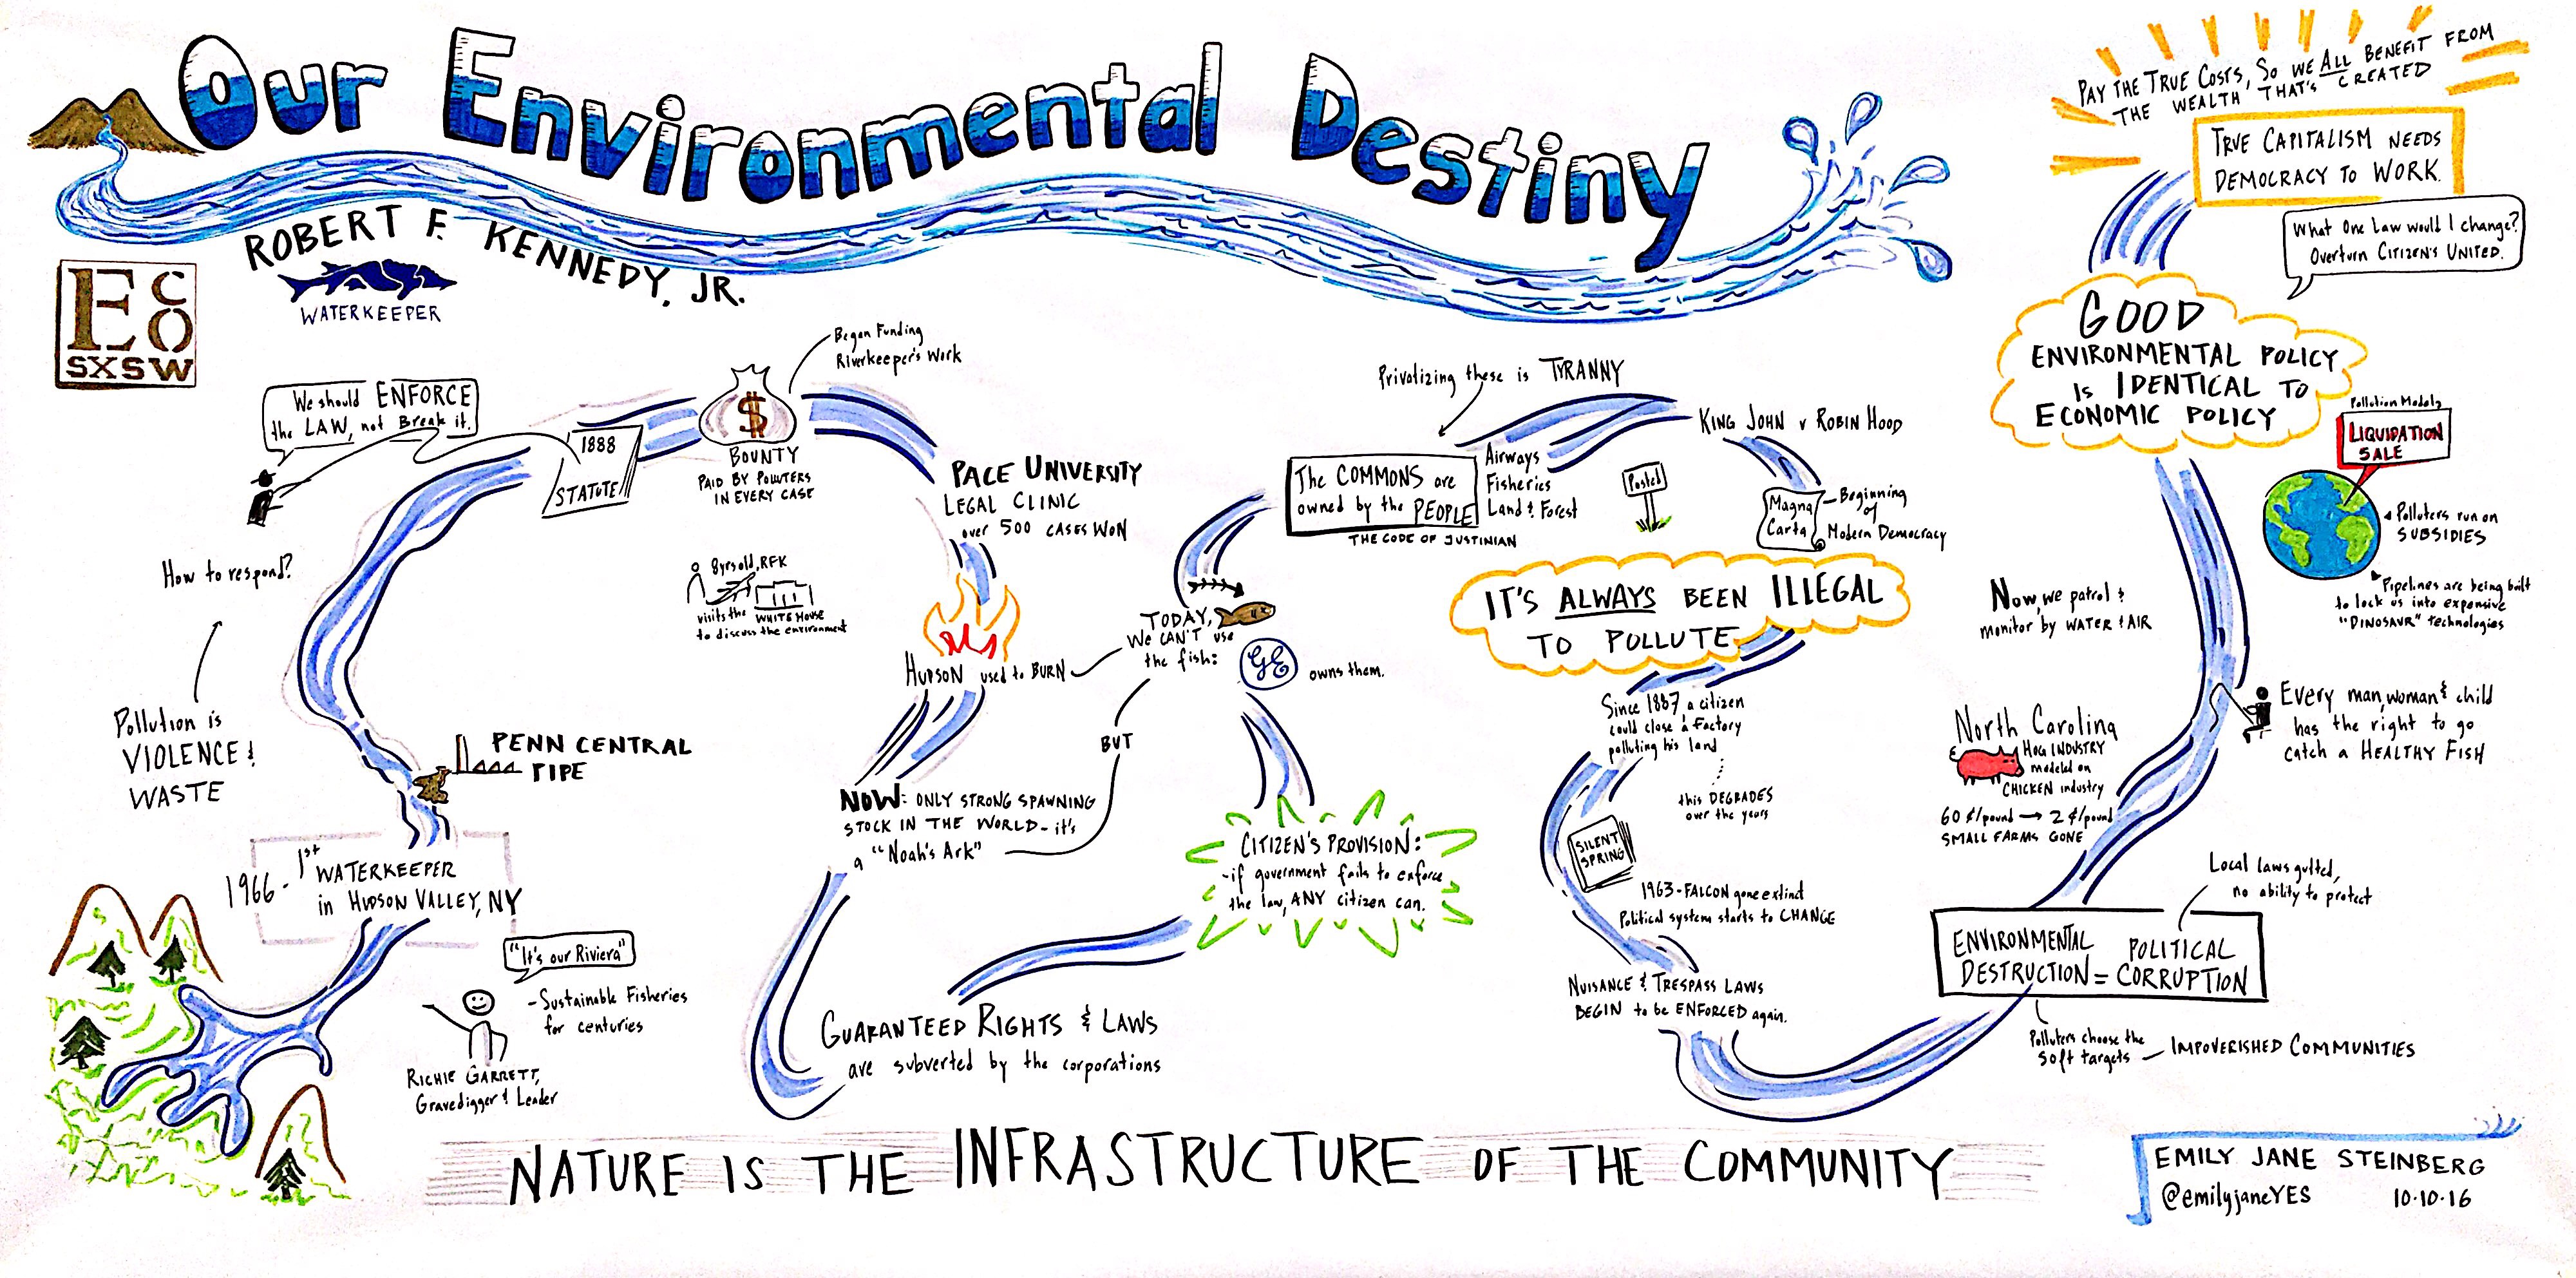 Our Environmental Destiny
ROBERT F. KENNEDY, JR.
WATERKEEPER
ECO
SXSW
1966 - 1st WATERKEEPER
in HUDSON VALLEY, NY
"It's our Riviera"
- Sustainable Fisheries
for centuries
RICHIE GARRETT,
Gravedigger & Leader
PENN CENTRAL
PIPE
Pollution is
VIOLENCE &
WASTE
How to respond?
We should ENFORCE
the LAW, not Break it.
1888
STATUTE
$
BOUNTY
PAID BY POLLUTERS
IN EVERY CASE
Began Funding
Riverkeeper's Work
PACE UNIVERSITY
LEGAL CLINIC
over 500 CASES WON
8yrs old, RFK
visits the WHITE HOUSE
to discuss the environment
HUDSON used to BURN
TODAY,
WE CAN'T use
the fish:
GE
owns them.
BUT
NOW: ONLY STRONG SPAWNING
STOCK IN THE WORLD - it's
a "Noah's Ark"
GUARANTEED RIGHTS & LAWS
are subverted by the corporations
CITIZEN'S PROVISION:
- if government fails to enforce
the law, ANY citizen can.
The COMMONS are
owned by the PEOPLE
THE CODE OF JUSTINIAN
Airways
Fisheries
Land & Forest
Privatizing these is TYRANNY
KING JOHN v ROBIN HOOD
Posted
Magna
Carta
- Beginning
of
Modern Democracy
IT'S ALWAYS BEEN ILLEGAL
TO POLLUTE
Since 1887, a citizen
could close a factory
polluting his land
this DEGRADES
over the years
SILENT
SPRING
1963 - FALCON gone extinct
Political system starts to CHANGE
NUISANCE & TRESPASS LAWS
BEGIN to be ENFORCED again.
ENVIRONMENTAL
DESTRUCTION = POLITICAL
CORRUPTION
Local laws gutted,
no ability to protect
Polluters choose the
soft targets - IMPOVERISHED COMMUNITIES
North Carolina
HOG INDUSTRY
modeled on
CHICKEN industry
60 ¢/pound → 2 ¢/pound
SMALL FARMS GONE
Every man, woman & child
has the right to go
catch a HEALTHY FISH
Now, we patrol &
monitor by WATER & AIR
Pollution Model
LIQUIDATION
SALE
Polluters run on
SUBSIDIES
Pipelines are being built
to lock us into expensive
"DINOSAUR" technologies
GOOD
ENVIRONMENTAL POLICY
is IDENTICAL TO
ECONOMIC POLICY
What One Law would I change?
Overturn CITIZEN'S UNITED.
TRUE CAPITALISM NEEDS
DEMOCRACY TO WORK.
PAY THE TRUE COSTS, SO WE ALL BENEFIT FROM
THE WEALTH THAT'S CREATED
NATURE IS THE INFRASTRUCTURE OF THE COMMUNITY
EMILY JANE STEINBERG
@emilyjaneYES 10·10·16